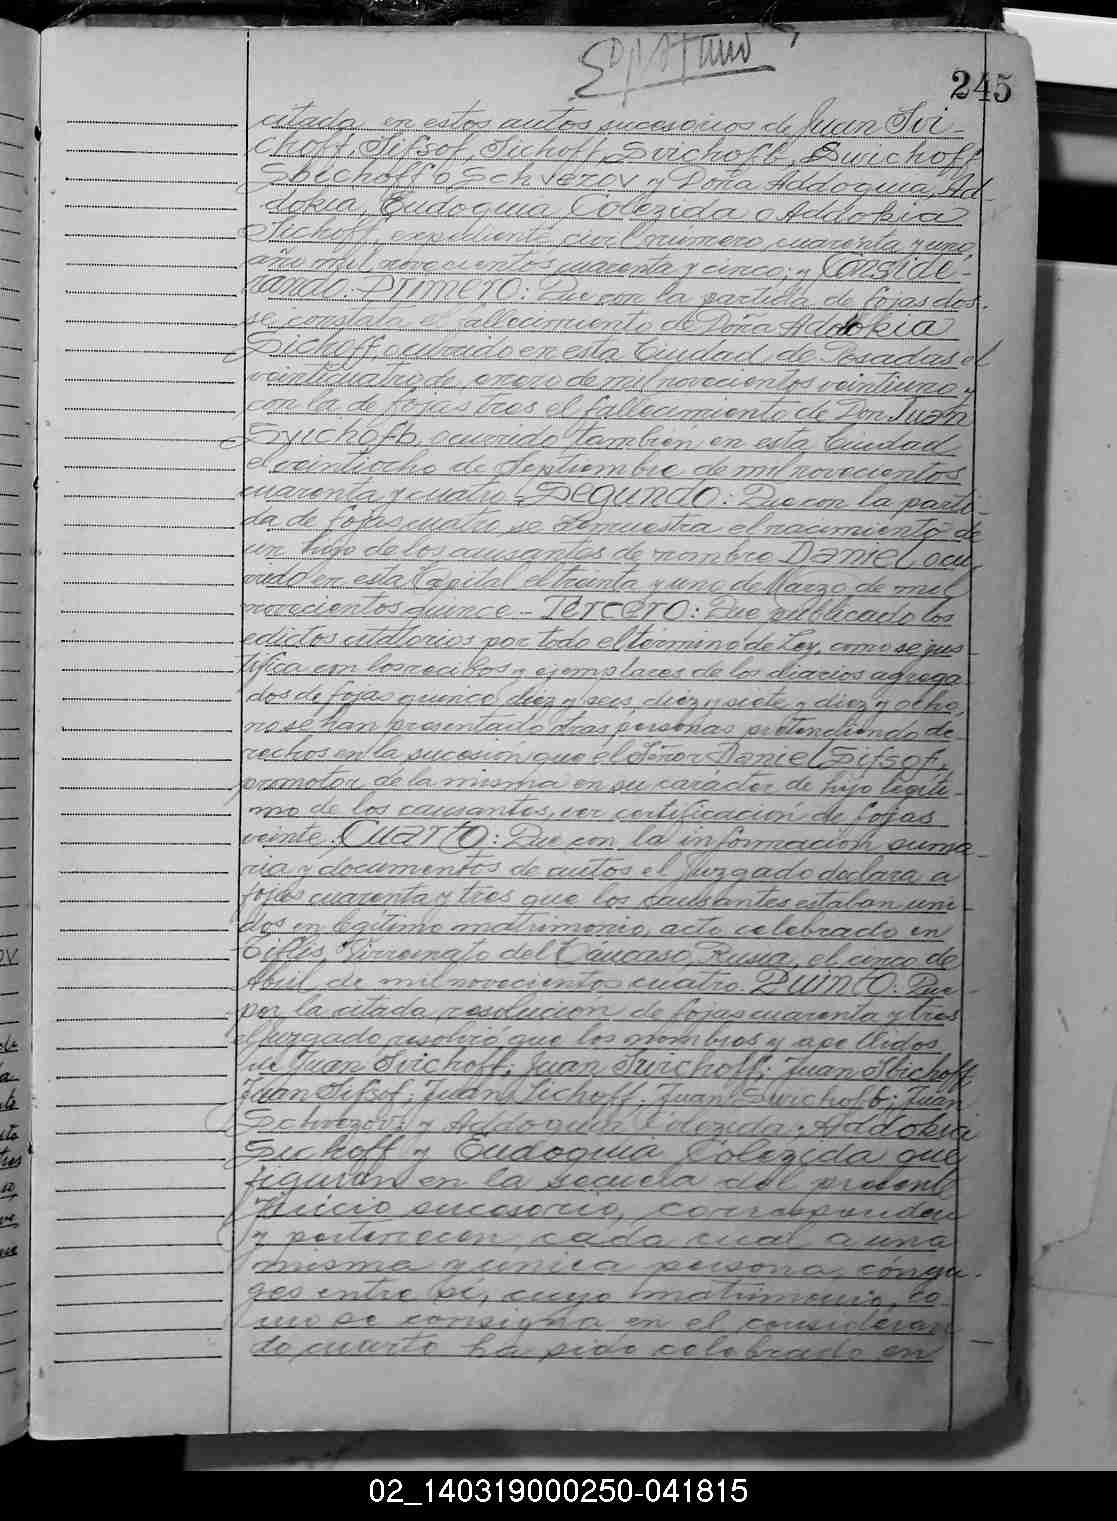 245
citada en estos autos sucesorios de Juan Svi-
choff, Sifsof, Sichoff, Svichofb, Swichoff
Sbichoff o Schverov y Doña Addoquia, Ad-
dokia, Eudoquia Colezida o Addokia
Sichoff, expediente civil número cuarenta y uno
año mil novecientos cuarenta y cinco; y Conside-
rando: Primero: Que con la partida de fojas dos
se constata el fallecimiento de Doña Addokia
Sichoff, ocurrido en esta Ciudad de Posadas el
veinticuatro de enero de mil novecientos veintiuno y
con la de fojas tres el fallecimiento de Don Juan
Svichofb, ocurrido también en esta Ciudad
el veintiocho de Septiembre de mil novecientos
cuarenta y cuatro.- Segundo: Que con la parti-
da de fojas cuatro se demuestra el nacimiento de
un hijo de los causantes de nombre Daniel, ocu-
rrido en esta Capital el treinta y uno de Marzo de mil
novecientos quince.- Tercero: Que publicado los
edictos citatorios por todo el término de Ley, como se jus-
tifica con los recibos y ejemplares de los diarios agrega-
dos de fojas quince, diez y seis, diez y siete y diez y ocho,
no se han presentado otras personas pretendiendo de-
rechos en la sucesión que el Señor Daniel Sifsof,
promotor de la misma en su carácter de hijo legíti-
mo de los causantes, ver certificación de fojas
veinte. Cuarto: Que con la información suma-
ria y documentos de autos el Juzgado declara a
fojas cuarenta y tres que los causantes estaban uni-
dos en legítimo matrimonio, acto celebrado en
Tiflis, Virreinato del Cáucaso, Rusia, el cinco de
Abril de mil novecientos cuatro. Quinto: Que
por la citada resolución de fojas cuarenta y tres
el Juzgado resolvió que los nombres y apellidos
de Juan Svichoff; Juan Swichoff; Juan Sbichoff,
Juan Sifsof; Juan Sichoff; Juan Svichofb; Juan
Schverov; y Addoquia Colezida; Addokia
Sichoff y Eudoquia Colezida que
figuran en la secuela del presente
juicio sucesorio, corresponden
y pertenecen, cada cual a una
misma y única persona, cónyu-
ges entre sí, cuyo matrimonio, co-
mo se consigna en el consideran-
do cuarto ha sido celebrado en
02_140319000250-041815